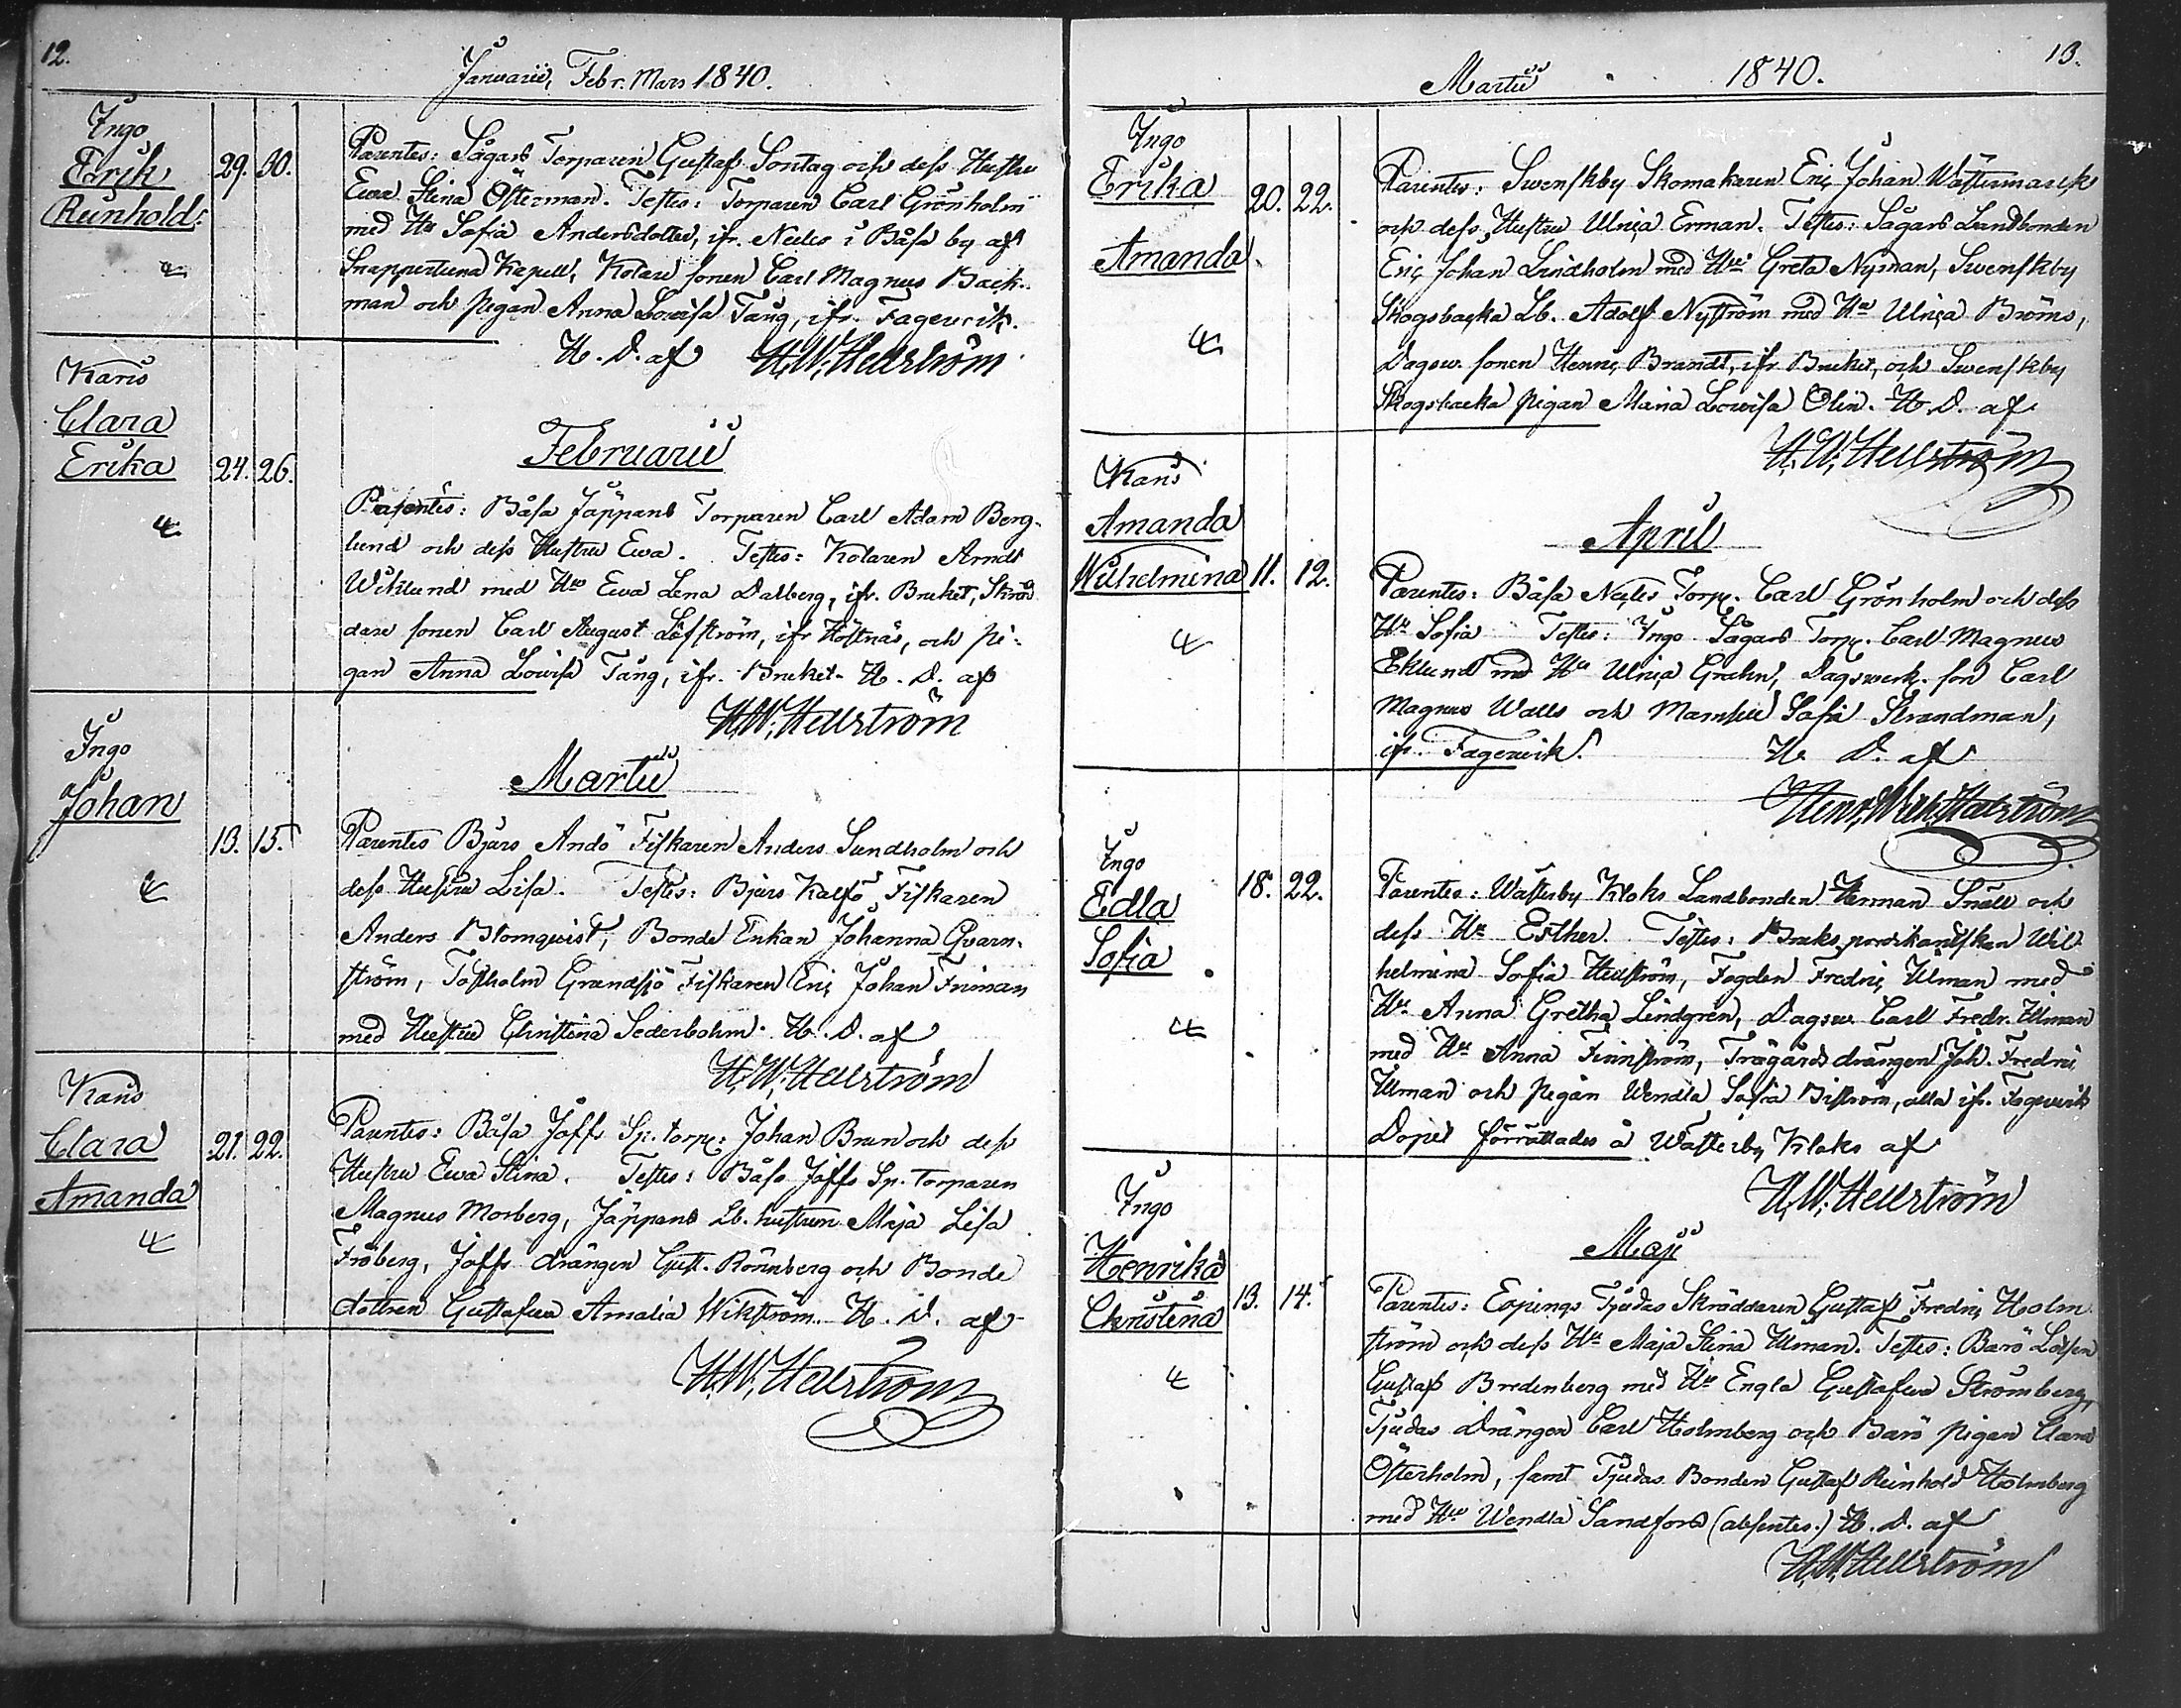 12.
Januarii, Febr. Mars 1840.
Ingo
Erik
Reinhold:
29. 30.
Parentes: Sågars Torparen Gustaf Sontag och dess Hustru
Ewa Stina Österman. Testes: Torparen Carl Grönholm
med Hu Sofia Andersdotter, ifr. Neeles i Båsa by af
Snappertuna Kapell, Kolare sonen Carl Magnus Back-
man och pigan Anna Lowisa Tång, ifr. Fagerwik.
H. D. af H.W. Hellström
Karis
Clara
Erika
24. 26.
Februarii
Parentes: Båsa Jäppans Torparen Carl Adam Berg-
lund och dess Hustru Ewa. Testes: Kolaren Arndt
Wiklund med Hu Ewa Lena Dalberg, ifr. Bruket, Skräd
dare sonen Carl August Löfström, ifr Höstnäs, och pi-
gan Anna Lowisa Tång, ifr. Bruket. H. D. af
H.W. Hellström
Ingo
Johan
13. 15.
Martii
Parentes Bjärs Andö Fiskaren Anders Sundholm och
dess Hustru Lisa. Testes: Bjärs Kalfö Fiskaren
Anders Blomqvist, Bonde Enkan Johanna Qvarn-
ström, Tostholm Grandsjö Fiskaren Eric Johan Friman
med Hustru Christina Sederbohm. H. D. af
H.W. Hellström
Karis
Clara
Amanda
21. 22.
Parentes: Båsa Joffs Sp. torp: Johan Brun och dess
Hustru Ewa Stina. Testes: Båsa Joffs Sp. Torparen
Magnus Morberg, Jäppans Lb. hustrun Maja Lisa
Fröberg, Joffs drängen Gust. Rönnberg och Bonde
dottren Gustafwa Amalia Wikström. H. D. af
H.W. Hellström
Martii 1840.
13.
Ingo
Erika
Amanda
20. 22.
Parentes: Swenskby Skomakaren Eric Johan Wästermarck
och dess Hustru Ulrica Erman. Testes: Sågars Landbonden
Eric Johan Lindholm med Hu Greta Nyman, Swenskby
Skogsbacka Lb. Adolf Nyström med Hu Ulrica Bröms,
Dagsw. sonen Henric Brandt, ifr Bruket, och Swenskby
Skogsbacka pigan Maria Lowisa Olin. H. D. af
H.W. Hellström
Karis
Amanda
Wilhelmina
11. 12.
April
Parentes: Båsa Neeles Torp. Carl Grönholm och dess
Hu Sofia Testes: Ingo Sågars Torp. Carl Magnus
Eklund med Hu Ulrica Grahn, Dagswerk. son Carl
Magnus Walls och Mamsell Sofia Strandman,
ifr. Fagerwik. H. D. af
Henr. Wilh. Hellström
Ingo
Edla
Sofia
18. 22.
Parentes: Wästerby Kloks Landbonden Herman Snäll och
dess Hu Esther. Testes: Bruks predikantskan Wil-
helmina Sofia Hellström, Fogden Fredric Ulman med
Hu Anna Gretha Lindgren, Dagsw. Carl Fredr. Ulman
med Hu Anna Finnström, Trägårds drängen Joh. Fredric
Ulman och pigan Wendla Sofia Biström, alla ifr. Fagerwik
Dopet förrättades å Wästerby Kloks af
H.W. Hellström
Ingo
Henrika
Christina
13. 14.
Maji
Parentes: Espings Tjudas Skräddaren Gustaf Fredric Holm
ström och dess Hu Maja Stina Ulman. Testes: Barö Lotsen
Gustaf Bredenberg med Hu Engla Gustafwa Strömberg,
Tjudas drängen Carl Holmberg och Barö pigan Clara
Österholm, samt Tjudas Bonden Gustaf Reinhold Holmberg
med Hu Wendla Sandfors (absentes.) H. D. af
H.W. Hellström